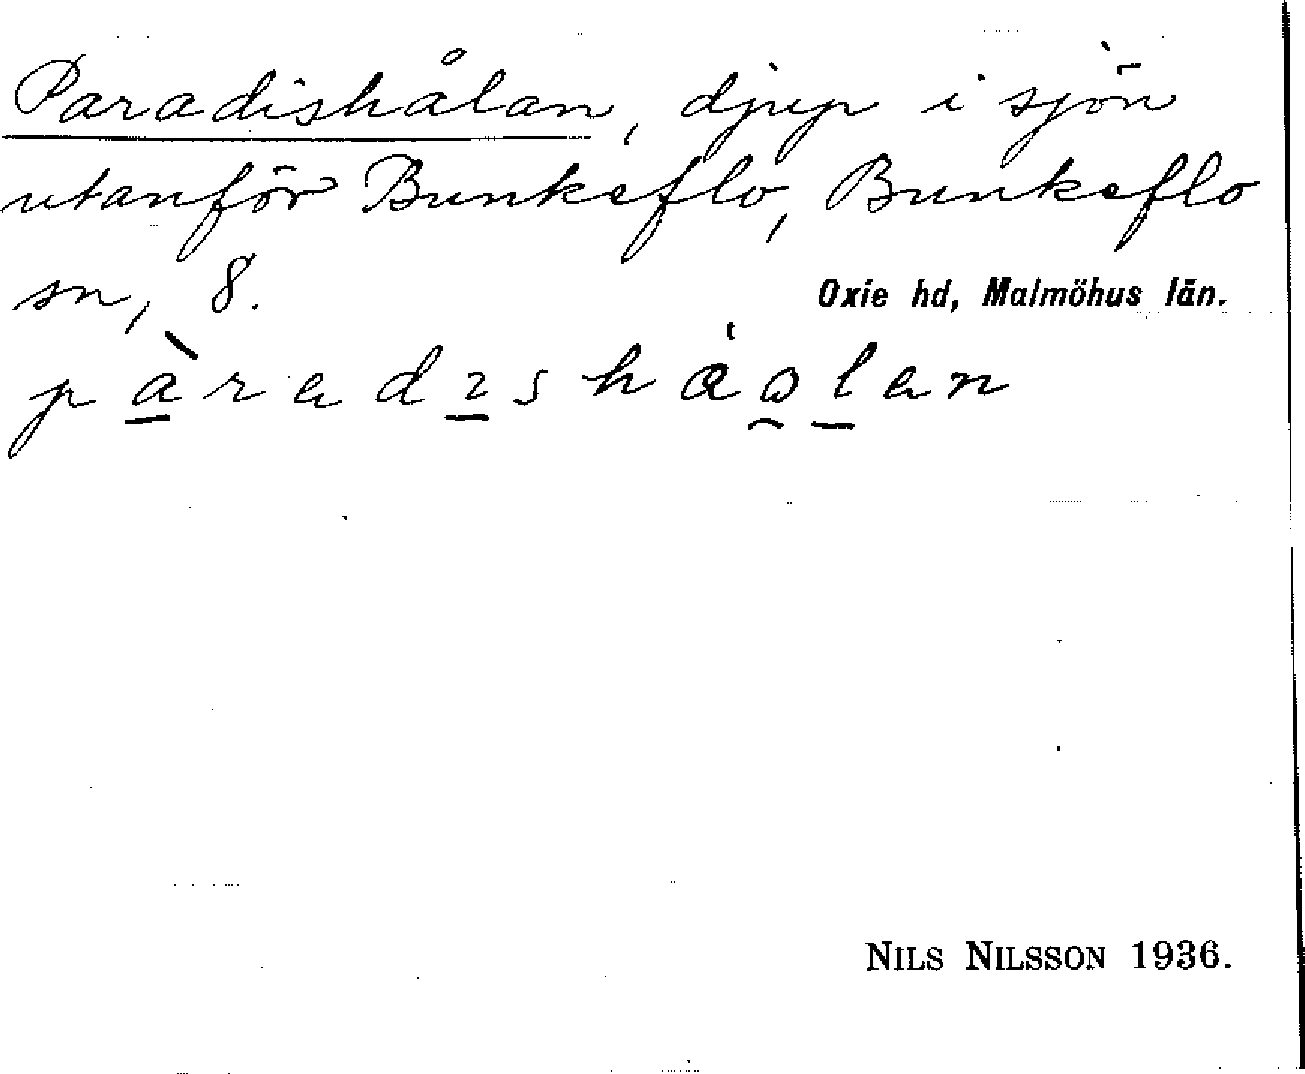 Paradishålan, djup i sjön
utanför Bunkeflo, Bunkeflo
sn, 8. Oxie hd, Malmöhus län.
pàradıshaɷlan
NILS NILSSON 1936.